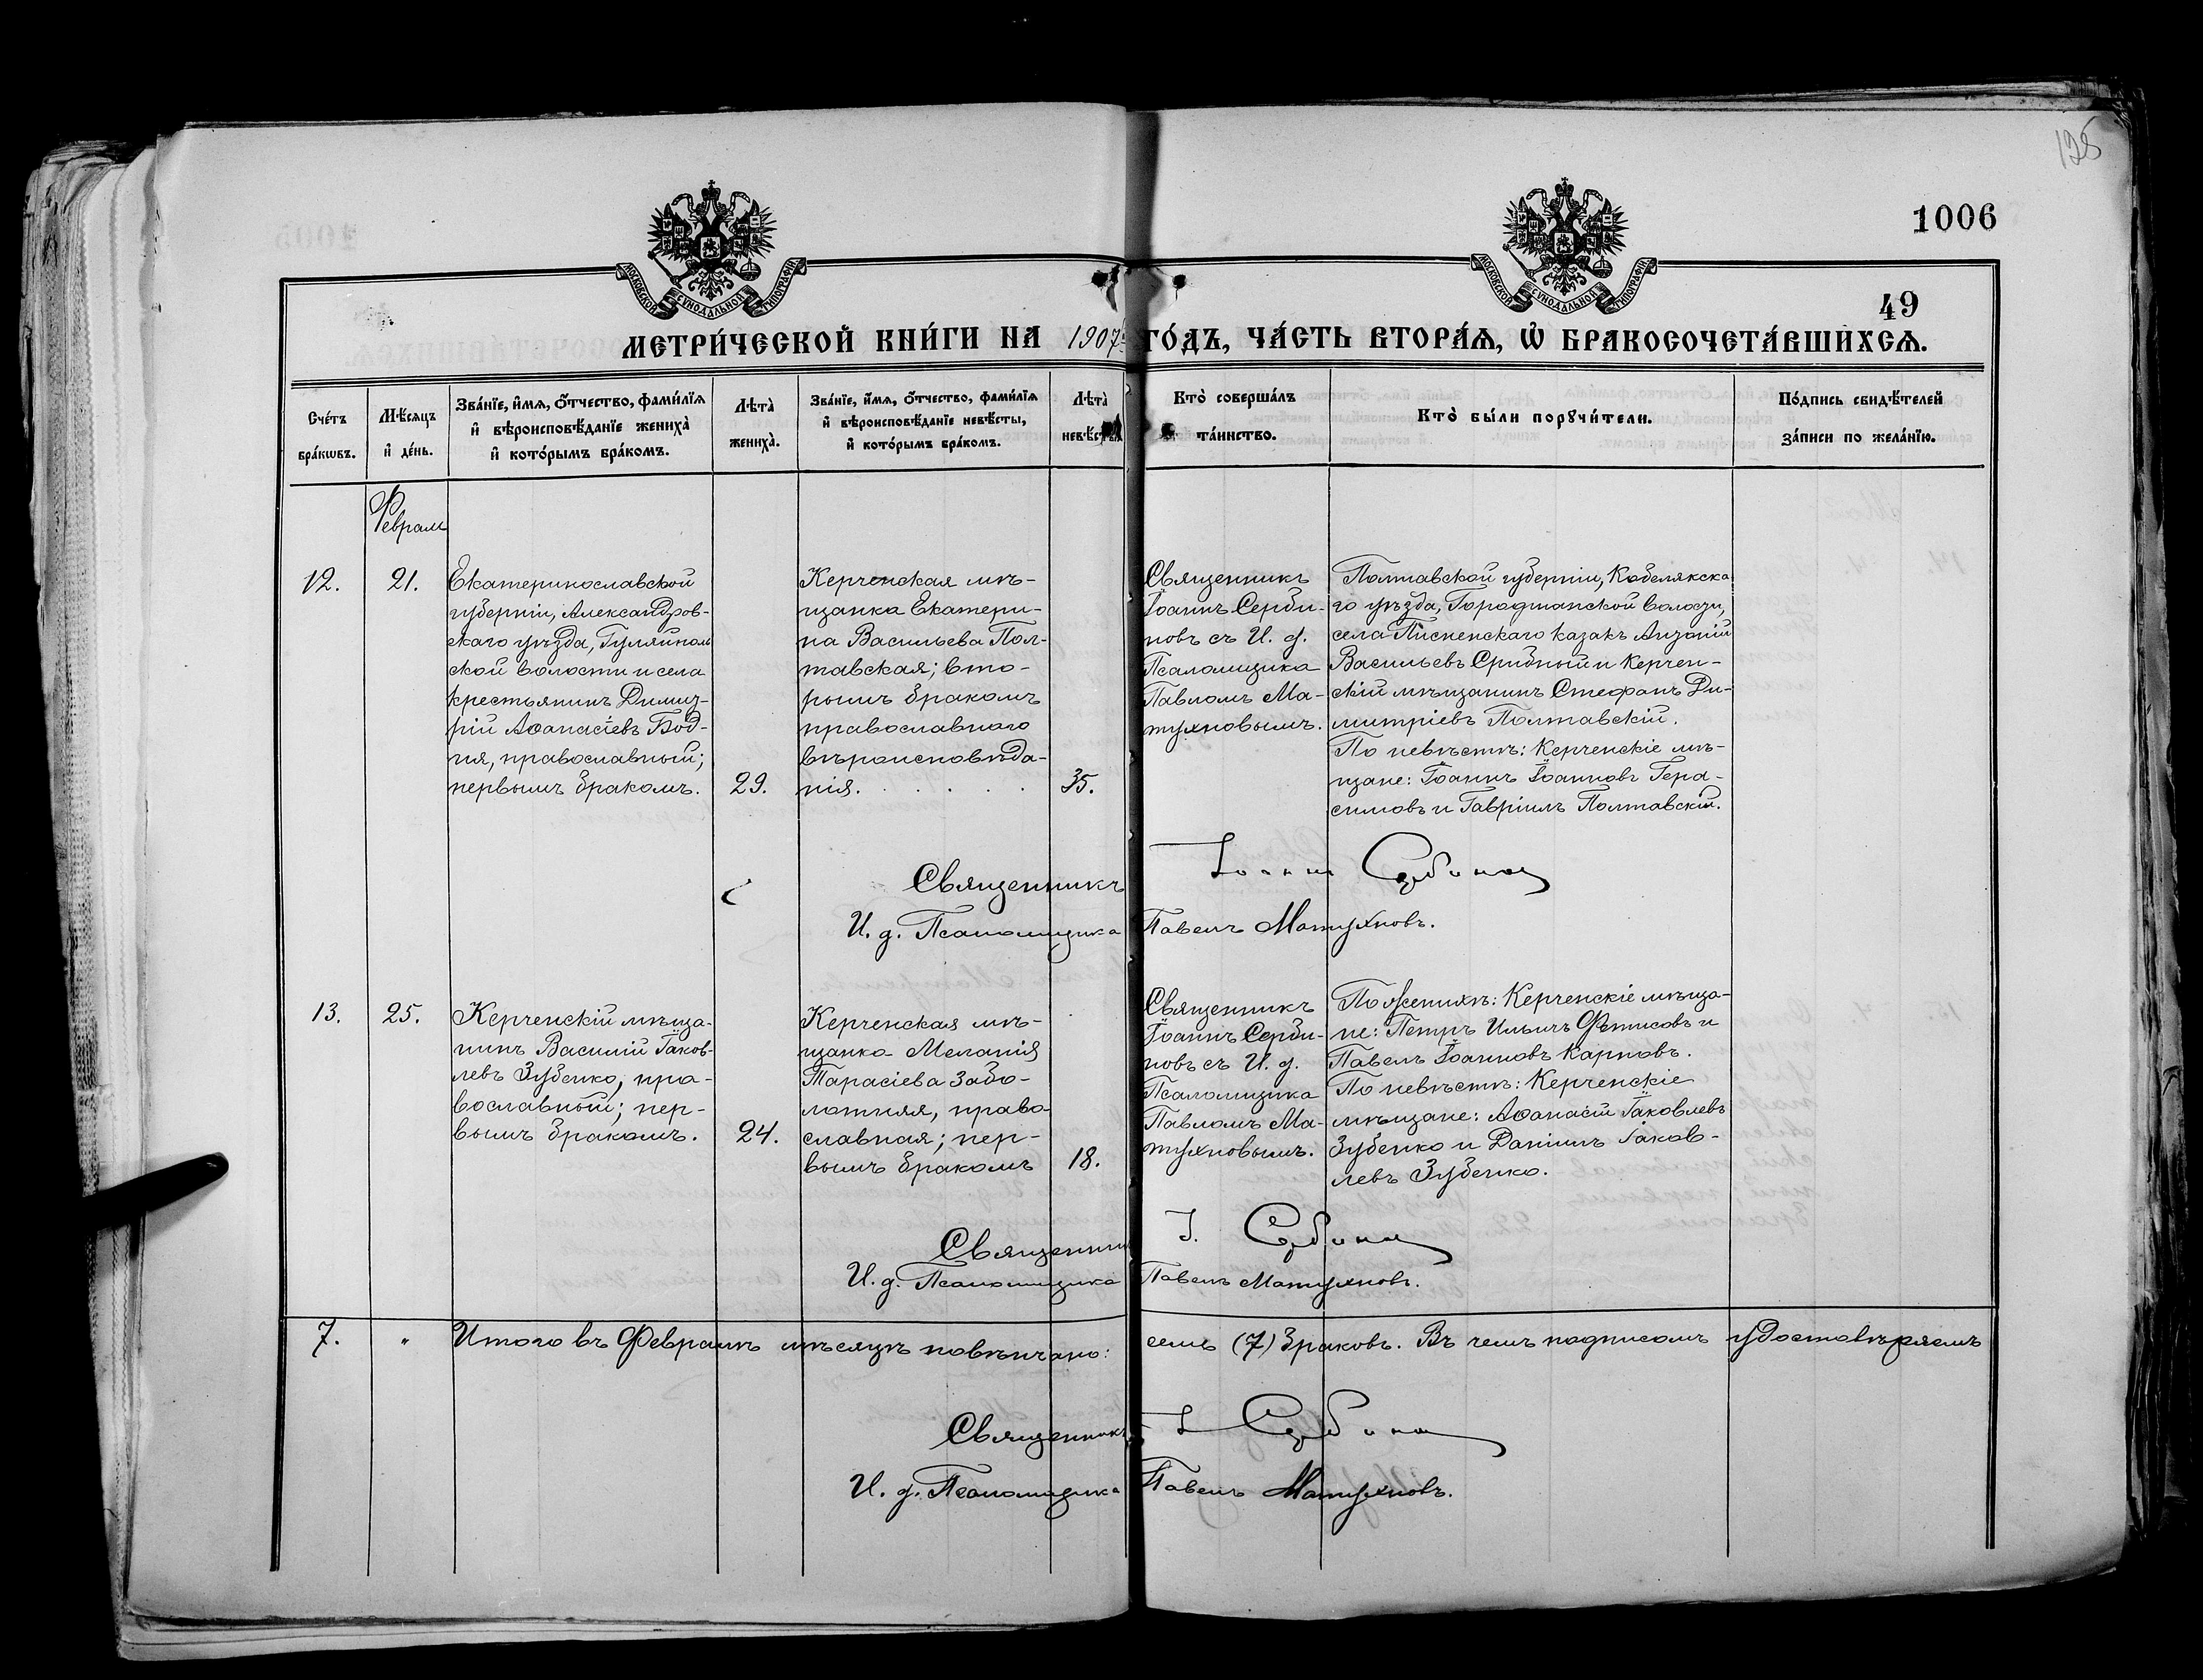 125
1006
49
МОСКОВСКОЙ СѴНОДАЛЬНОЙ ТИПОГРАФІИ
МОСКОВСКОЙ СѴНОДАЛЬНОЙ ТИПОГРАФІИ
МЕТРИ́ЧЕСКОЙ КНИ́ГИ НА 1907й ГО́ДЪ, ЧА́СТЬ ВТОРА́Ѧ, Ѡ҆ БРАКОСОЧЕТА́ВШИХСѦ.
Сче́тъ
бра́кѡвъ.
Мѣ́сѧцъ
и҆ де́нь.
Зва́нїе, и҆́мѧ, ѻ҆́тчество, фами́лїѧ
и҆ вѣроисповѣ́данїе жениха̀
и҆ кото́рымъ бра́комъ.
Лѣта̀
жениха̀.
Зва́нїе, и҆́мѧ, ѻ҆́тчество, фами́лїѧ
и҆ вѣроисповѣ́данїе невѣ́сты,
и҆ кото́рымъ бра́комъ.
Лѣта̀
невѣ́сты.
Кто̀ соверша́лъ
та́инство.
Кто̀ бы́ли порꙋчи́тели.
По́дпись свидѣ́телей
за́писи по жела́нїю.
Февраль
12.
21.
Екатеринославской
губерніи, Александров-
скаго уѣзда, Гуляйполь
ской волости и села
крестьянинъ Димит-
рій Аѳанасіевъ Бод-
ня, православный;
первымъ бракомъ.
29.
Керченская мѣ-
щанка Екатери-
на Васильева Пол-
тавская; вто-
рымъ бракомъ
православного
вѣроисповѣда-
нія. . . . . . .
35.
Священникъ
Іоаннъ Серби-
новъ съ И. д.
Псаломщика
Павломъ Ма-
тухновымъ.
Полтавской губерніи, Кобелякска
го уѣзда, Городчанской волости,
села Писненскаго казакъ Антоній
Васильевъ Срибный и Керчен-
скій мѣщанинъ Стефанъ Ди-
митріевъ Полтавскій.
По невѣстѣ: Керченскіе мѣ-
щане: Іоаннъ Іоанновъ Гера-
симовъ и Гавріилъ Полтавскій.
Священникъ Іоаннъ Сербиновъ
И. д. Псаломщика Павелъ Матухновъ.
13.
25.
Керченскій мѣща-
нинъ Василій Іаков-
левъ Зубенко, пра-
вославный; пер-
вымъ бракомъ.
24.
Керченская мѣ-
щанка Меланія
Тарасіева Забо-
лотняя, право-
славная; пер-
вымъ бракомъ
18.
Священникъ
Іоаннъ Серби-
новъ съ И. д.
Псаломщика
Павломъ Ма-
тухновымъ.
По женихѣ: Керченскіе мѣща-
не: Петръ Ильичъ Фетисовъ и
Павелъ Іоанновъ Карповъ.
По невѣстѣ: Керченскіе
мѣщане: Аѳанасій Іаковлевъ
Зубенко и Даніилъ Іаков-
левъ Зубенко.
Священник І. Сербиновъ
И. д. Псаломщика Павелъ Матухновъ.
7. " Итого въ Февралѣ мѣсяцѣ повѣнчано: семь (7) браковъ. Въ чемъ подписомъ удостовѣряемъ
Священникъ І Сербиновъ
И. д. Псаломщика Павелъ Матухновъ.